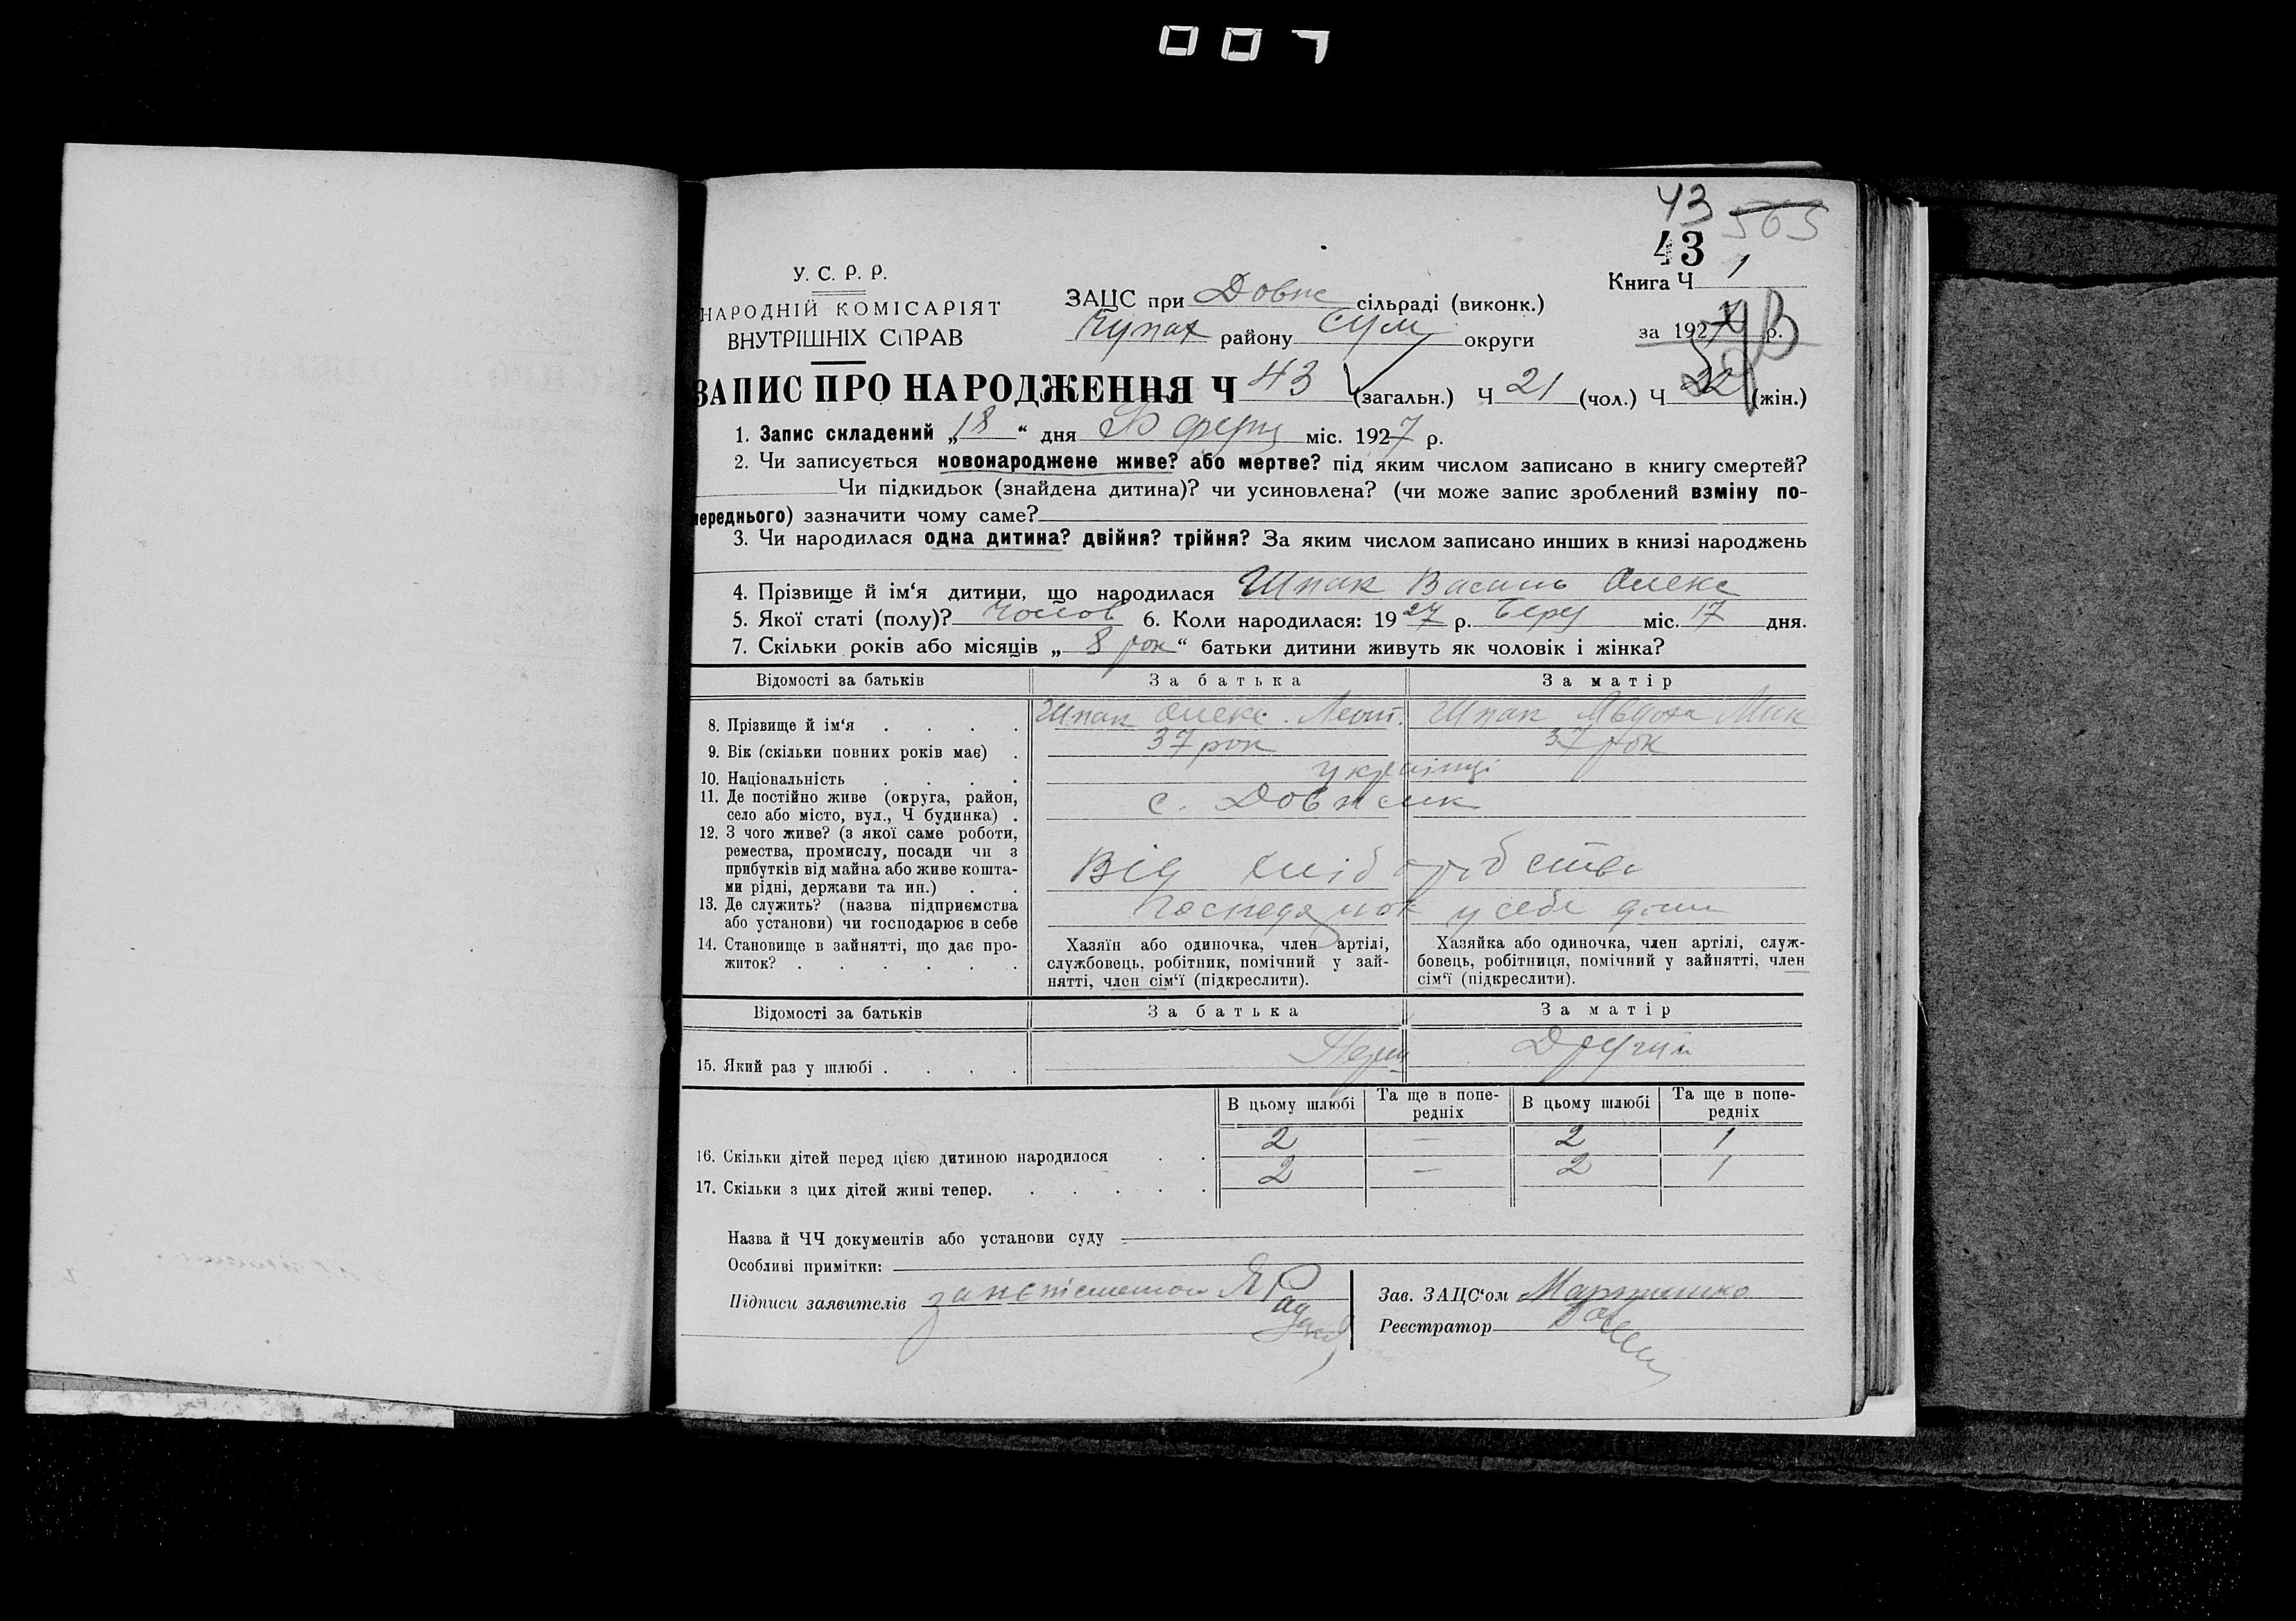 007
43 565
43
У. С. Р. Р.
НАРОДНІЙ КОМІСАРІЯТ
ВНУТРІШНІХ СПРАВ
Книга Ч 1
ЗАЦС при Довж сільраді (виконк.)
Чупах району Сум округи
за 1927 р.
ЗАПИС ПРО НАРОДЖЕННЯ Ч 43 (загальн.) Ч 21 (чол.) Ч 22 (жін.)
1. Запис складений „18“ дня міс. 1927 р.
2. Чи записується новонароджене живе? або мертве? під яким числом записано в книгу смертей?
Чи підкидьок (знайдена дитина)? чи усиновлена? (чи може запис зроблений взміну по-
переднього) зазначити чому саме?
3. Чи народилася одна дитина? двійня? трійня? За яким числом записано инших в книзі народжень
4. Прізвище й ім‘я дитини, що народилася Шпак Василь Олекс
5. Якої статі (полу)? чолов 6. Коли народилася: 1927 р. Берез міс. 17 дня.
7. Скільки років або місяців „8 рок“ батьки дитини живуть як чоловік і жінка?
Відомості за батьків За батька За матір
8. Прізвище й ім‘я . . . . Шпак Олекс. Леонт. Шпак Явдоха Мик
9. Вік (скільки повних років має) . 37 рок 37 рок
10. Національність . . . . українці
11. Де постійно живе (округа, район,
село або місто, вул., Ч будинка) . с. Довжик
12. З чого живе? (з якої саме роботи,
ремества, промислу, посади чи з
прибутків від майна або живе кошта-
ми рідні, держави та ин.) . . Від хліборобства
13. Де служить? (назва підприємства
або установи) чи господарює в себе у себе дома
14. Становище в зайнятті, що дає про-
житок? . . . . . .
Хазяїн або одиночка, член артілі,
службовець, робітник, помічний у зай-
нятті, член сім‘ї (підкреслити).
Хазяйка або одиночка, член артілі, служ-
бовець, робітниця, помічний у зайнятті, член
сім‘ї (підкреслити).
Відомості за батьків За батька За матір
15. Який раз у шлюбі . . . . Перш Другий
В цьому шлюбі Та ще в попе-
редніх В цьому шлюбі Та ще в попе-
редніх
16. Скільки дітей перед цією дитиною народилося . . 2 — 2 1
17. Скільки з цих дітей живі тепер. . . . . . 2 — 2 1
Назва й ЧЧ документів або установи суду
Особливі примітки:
Підписи заявителів
Зав. ЗАЦС‘ом
Реєстратор